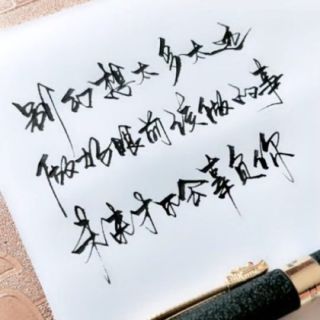 别幻想太多太远
做好眼前该做的事
未来才不会辜负你